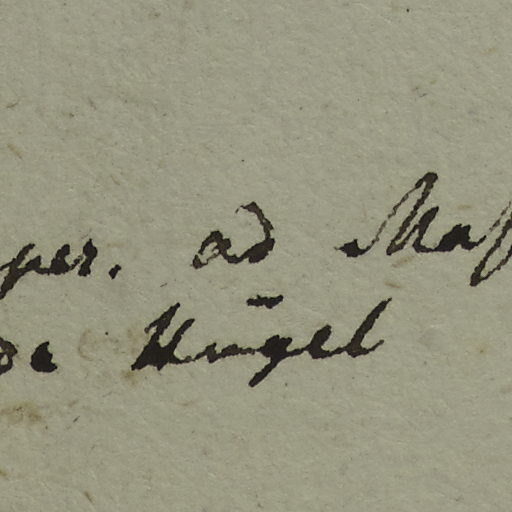 per. ad Mass
de Hügel